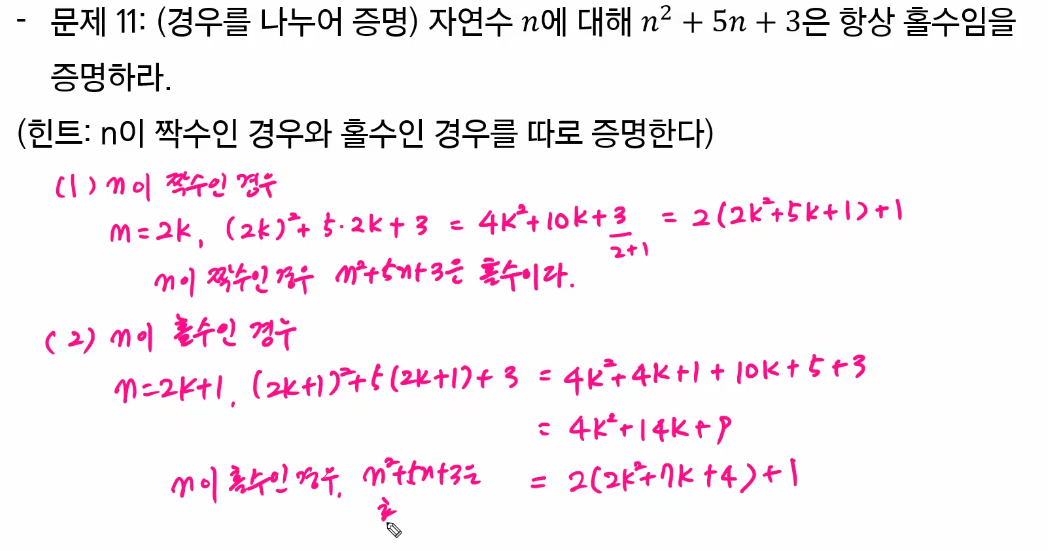 - 문제 11: (경우를 나누어 증명) 자연수 n에 대해 n² + 5n + 3은 항상 홀수임을
증명하라.
(힌트: n이 짝수인 경우와 홀수인 경우를 따로 증명한다)
(1) n이 짝수인 경우
n=2k, (2k)²+5·2k+3 = 4k²+10k+3 = 2(2k²+5k+1)+1
2+1
n이 짝수인 경우 n²+5n+3은 홀수이다.
(2) n이 홀수인 경우
n=2k+1, (2k+1)²+5(2k+1)+3 = 4k²+4k+1+10k+5+3
= 4k²+14k+9
n이 홀수인 경우, n²+5n+3은 = 2(2k²+7k+4)+1